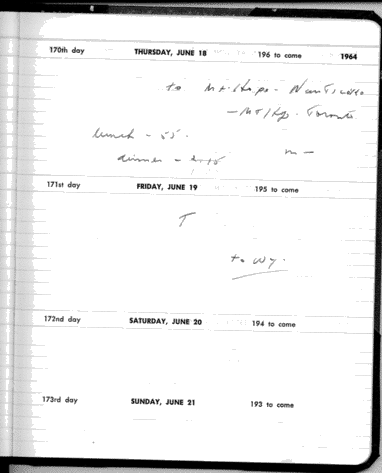 170th day THURSDAY, JUNE 18 196 to come 1964
to
Toronto
lunch - 55.
dinner -
171st day FRIDAY, JUNE 19 195 to come
T
to NY.
172nd day SATURDAY, JUNE 20 194 to come
173rd day SUNDAY, JUNE 21 193 to come